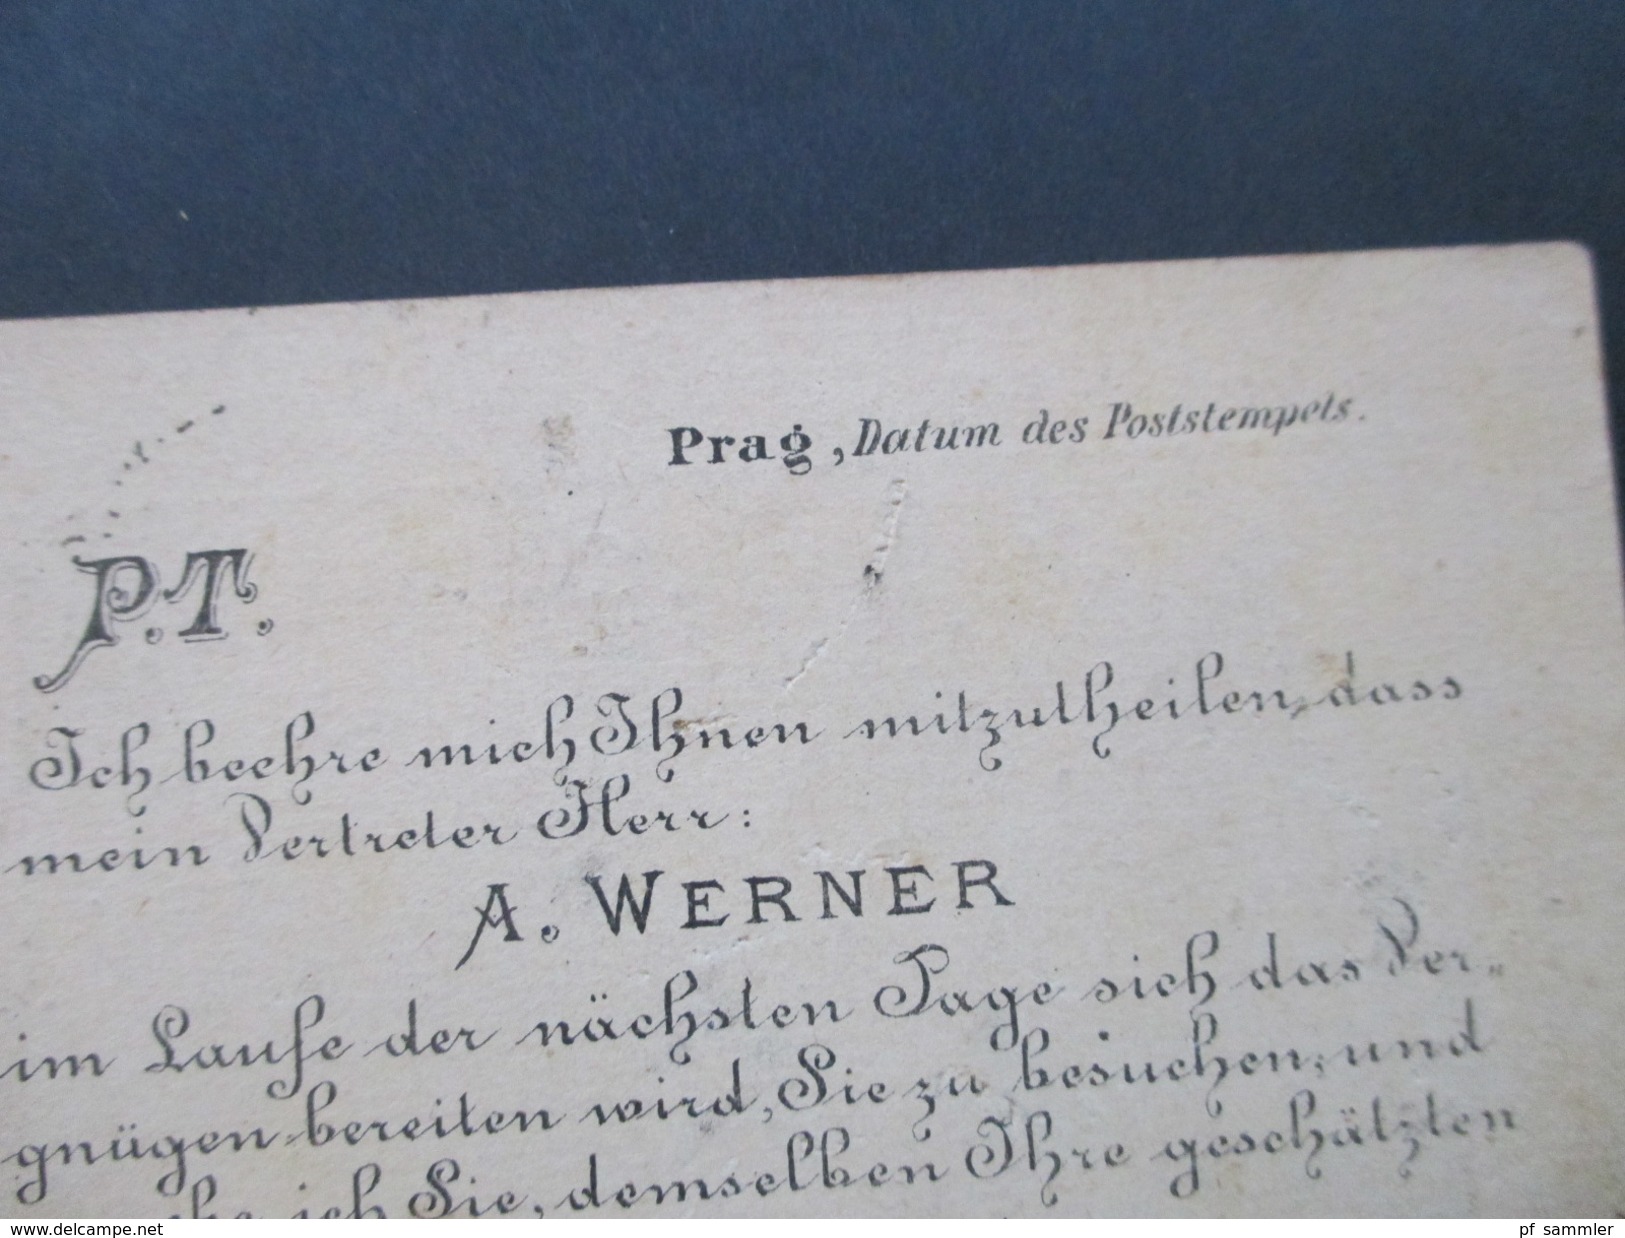 Prag, Datum des Poststempels.
P.T.
Ich beehre mich Ihnen mitzutheilen, dass
mein Vertreter Herr:
A. WERNER
im Laufe der nächsten Tage sich das Ver-
gnügen bereiten wird, Sie zu besuchen, und
ich Sie, demselben Ihre geschätzten
www.delcampe.net
pf_sammler